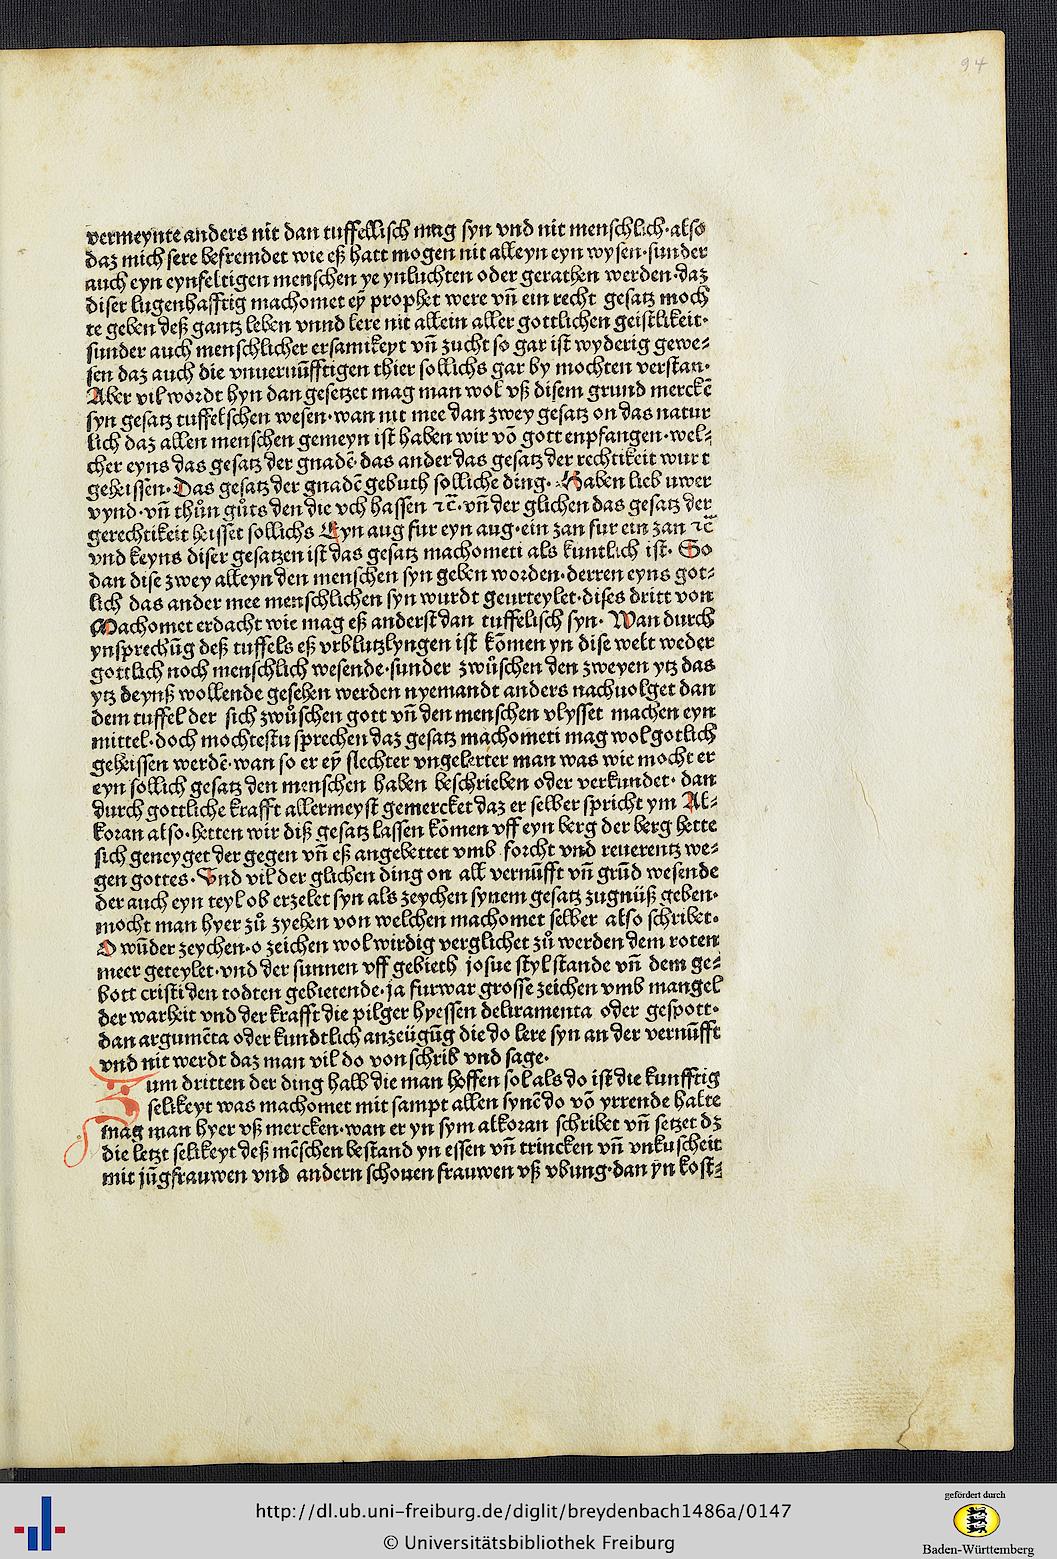 94
vermeynte anders nit dan tuffellisch mag syn vnd nit menschlich·also
daz mich sere befremdet wie eß hatt mogen nit alleyn eyn wysen·sunder
auch eyn eynfeltigen menschen ye ynluchten oder gerathen werden·daz
diser lugenhafftig machomet eÿ prophet were vn̄ ein recht gesatz moch
te geben deß gantz leben vnnd lere nit allein aller gottlichen geistlikeit·
sunder auch menschlicher ersamikeyt vn̄ zucht so gar ist wyderig gewe⸗
sen daz auch die vnuernūfftigen thier sollichs gar by mochten verstan·
Aber vil wordt hyn dan gesetzet mag man wol vß disem grund merckē
syn gesatz tuffelschen wesen·wan nit mee dan zwey gesatz on das natur
lich daz allen menschen gemeyn ist haben wir vō gott enpfangen·wel⸗
cher eyns das gesatz der gnadē·das ander das gesatz der rechtikeit wurt
geheissen·Das gesatz der gnadē gebuth solliche ding·Haben lieb uwer
vynd·vn̄ thůn gůts den die vch hassen ⁊c̄·vn̄ der glichen das gesatz der
gerechtikeit heisset sollichs Eyn aug fur eyn aug·ein zan fur ein zan ⁊c̄
vnd keyns diser gesatzen ist das gesatz machometi als kuntlich ist· So
dan dise zwey alleyn den menschen syn geben worden·derren eyns got⸗
lich das ander mee menschlichen syn wurdt geurteylet·dises dritt von
Machomet erdacht wie mag eß anderst dan tuffelisch syn· Wan durch
ynsprechūg deß tuffels eß vrblutzlyngen ist kōmen yn dise welt weder
gottlich noch menschlich wesende·sunder zwůschen den zweyen ytz das
ytz deynß wollende gesehen werden nyemandt anders nachuolget dan
dem tuffel der sich zwůschen gott vn̄ den menschen vlysset machen eyn
mittel·doch mochtestu sprechen daz gesatz machometi mag wol gotlich
geheissen werdē·wan so er eÿ slechter vngelerter man was wie mocht er
eyn sollich gesatz den menschen haben beschrieben oder verkundet· dan
durch gottliche krafft allermeyst gemercket daz er selber spricht ym Al⸗
koran also·hetten wir diß gesatz lassen kōmen vff eyn berg der berg hette
sich geneyget der gegen vn̄ eß angebettet vmb forcht vnd reuerentz we⸗
gen gottes·Vnd vil der glichen ding on all vernūfft vn̄ grūd wesende
der auch eyn teyl ob erzelet syn als zeychen synem gesatz zugnüß geben·
mocht man hyer zů zyehen von welchen machomet selber also schribet·
O wūder zeychen·o zeichen wol wirdig verglichet zů werden dem roten
meer geteylet·vnd der sunnen vff gebieth josue styl stande vn̄ dem ge⸗
bott cristi den todten gebietende·ja furwar grosse zeichen vmb mangel
der warheit vnd der krafft die pilger hyessen deliramenta oder gespott·
dan argumēta oder kundtlich anzeügūg die do lere syn an der vernūfft
vnd nit werdt daz man vil do von schrib vnd sage·
Zum dritten der ding halb die man hoffen sol als do ist die kunfftig
selikeyt was machomet mit sampt allen synē do vō yrrende halte
mag man hyer vß mercken·wan er yn sym alkoran schribet vn̄ setzet dz
die letzt selikeyt deß mēschen bestand yn essen vn̄ trincken vn̄ vnkuscheit
mit jūgfrauwen vnd andern schonen frauwen vß vbung·dan ÿn kost⸗
http://dl.ub.uni-freiburg.de/diglit/breydenbach1486a/0147
© Universitätsbibliothek Freiburg
gefördert durch
Baden-Württemberg